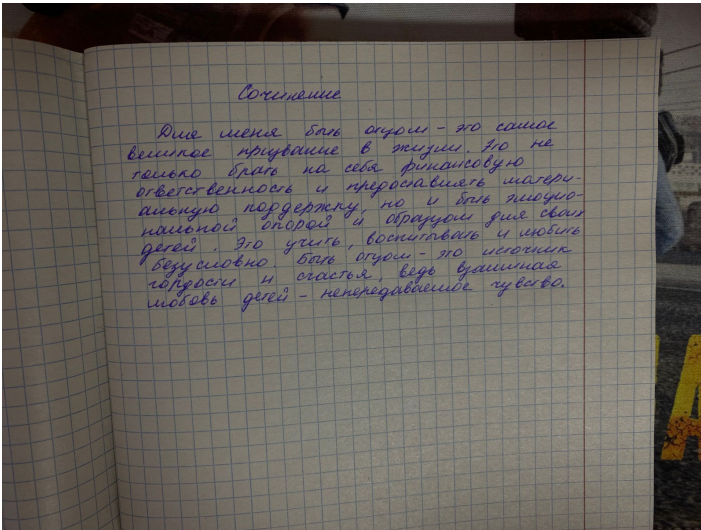 Сочинение
Для меня быть отцом – это самое
великое призвание в жизни. Это не
только брать на себя финансовую
ответственность и предоставлять матери-
альную поддержку, но и быть эмоцио-
нальной опорой и образцом для своих
детей. Это учить, воспитывать и любить
безусловно быть отцом – это источник
гордости и счастья, ведь взаимная
любовь детей – непередаваемое чувство.
А